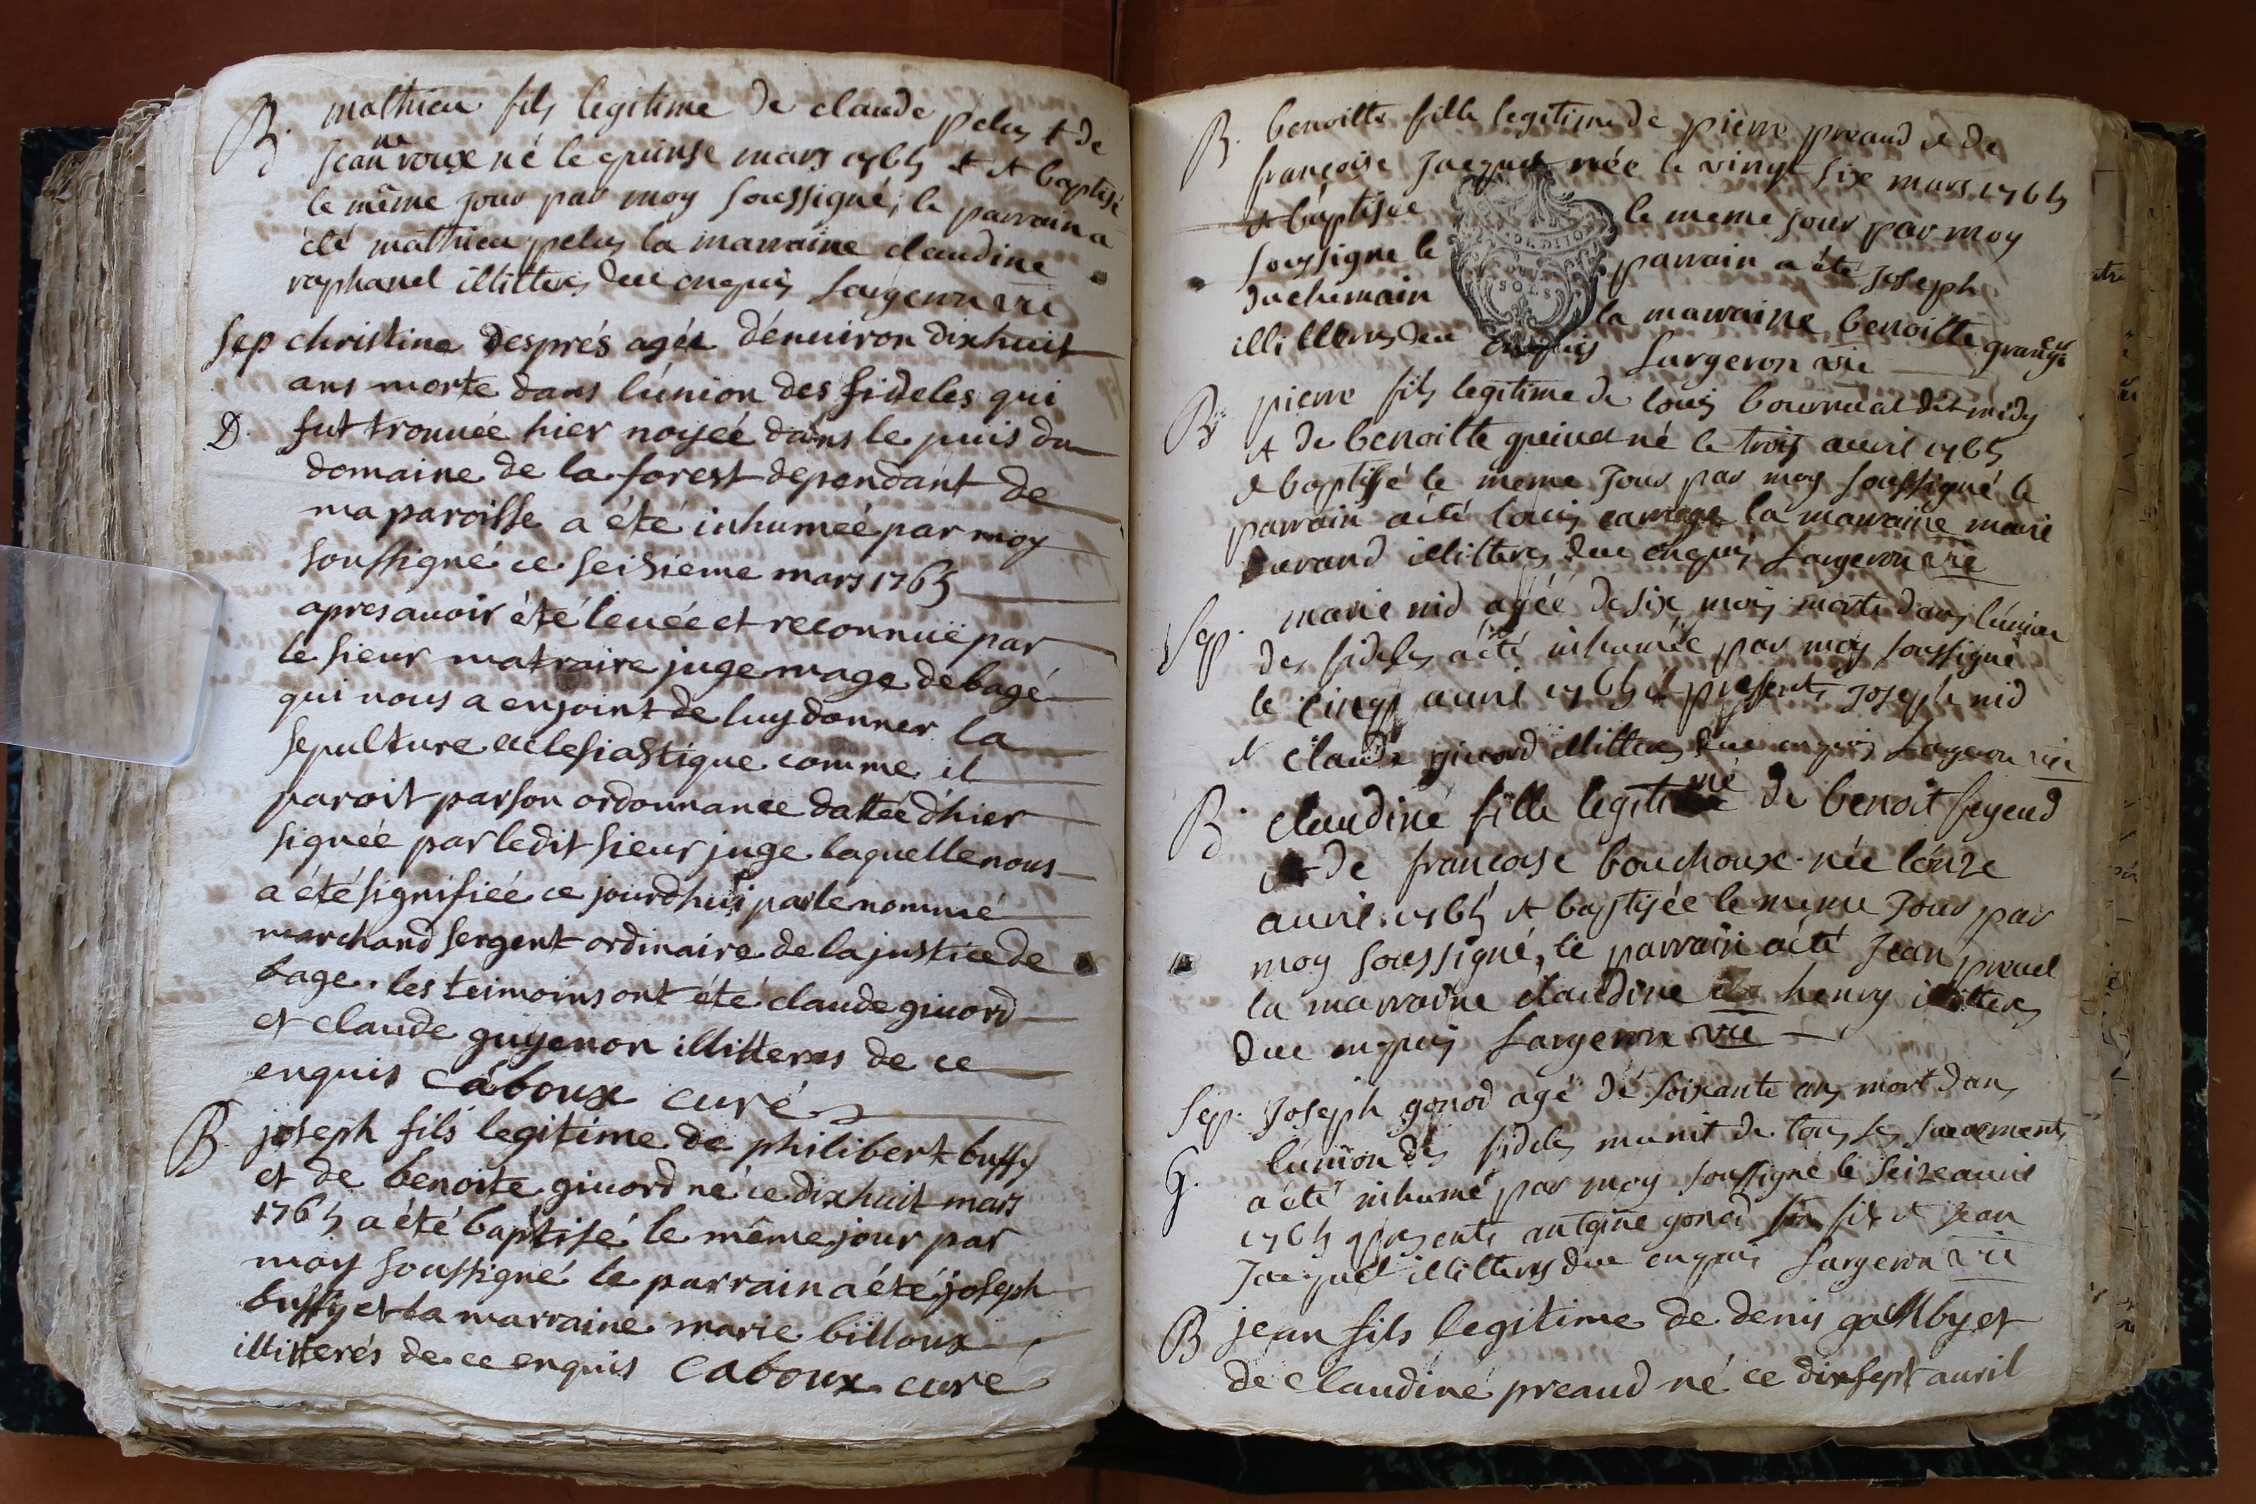 B. mathieu fils legitime de claude pelus & de
Jeanne roux né le quinse mars 1765 & et baptisé
le même jour par moy soussigné, le parrain a
été mathieu pelus la marraine claudine
raphanel illitters due enquis Largeron vic
sep christine desprès agée dénuiron dixhuit
ans morte dans lúnion des fideles qui
D. fut trouuée hier noyeé dans le puis du
domaine de la forest dependant de
ma paroisse a été inhumeé par moy
soussigné ce seisiéme mars 1765
apres auoir été leuée et reconnuë par
le sieur matraire juge mage de bagé
qui nous a enjoint de luy donner la
sepulture eclesiastique comme il
paroit par son ordonnance dattée d'hier
signée par ledit sieur juge laquelle nous
a été signifiée ce jourdhui par le nommé
marchand sergent ordinaire de la justice de
bage. les temoins ont été claude giuord
et claude guyenon illitteres de ce
enquis Caboux curé
B. joseph fils legitime de philibert buffy
et de benoite giuord né ce dixhuit mars
1765 a été baptisé le même jour par
moy soussigné le parrain a été joseph
buffy et la marraine marie billoux
illitterés de ce enquis Caboux curé
B. benoitte fille legitime de pierre preaud & de
françoise Jacquet née le vingt six mars 1765
& baptisée le meme jour par moy
soussigne le parrain a été Joseph
duchemain la marraine benoitte granger
illitteres due enquis Largeron vic
B. pierre fils legitime de louis bournuat dit midy
& de benoitte né le trois auril 1765
& baptissé le meme Jour par moy soussigné le
parrain a été louis la marraine marie
illitteres due enquis Largeron vic
Sep. marie nid agéé de six mois morte dans lúnion
des fideles a été inhumée par moy soussigné
le cinq auril 1765 presents Joseph nid
& claude giuord illitteres due enquis Largeron vic
B. claudine fille legitime de benoit feyeud
& de francoise bouchoux née lónze
auril 1765 & baptisée le meme Jour par
moy soussigné, le parrain a été Jean
la marraine claudine henry illitteres
due enquis Largeron vic
Sep. Joseph gonod agé de soixante ans mort dans
G. lúnion des fideles munit de tous ses sacrements
a été inhumé par moy soussigné le seize auril
1765 presents antoine gonod son fils & Jean
Jacquet illitteres due enquis Largeron vic
B jean fils legitime de denis et
de claudine preaud né ce dixsept auril